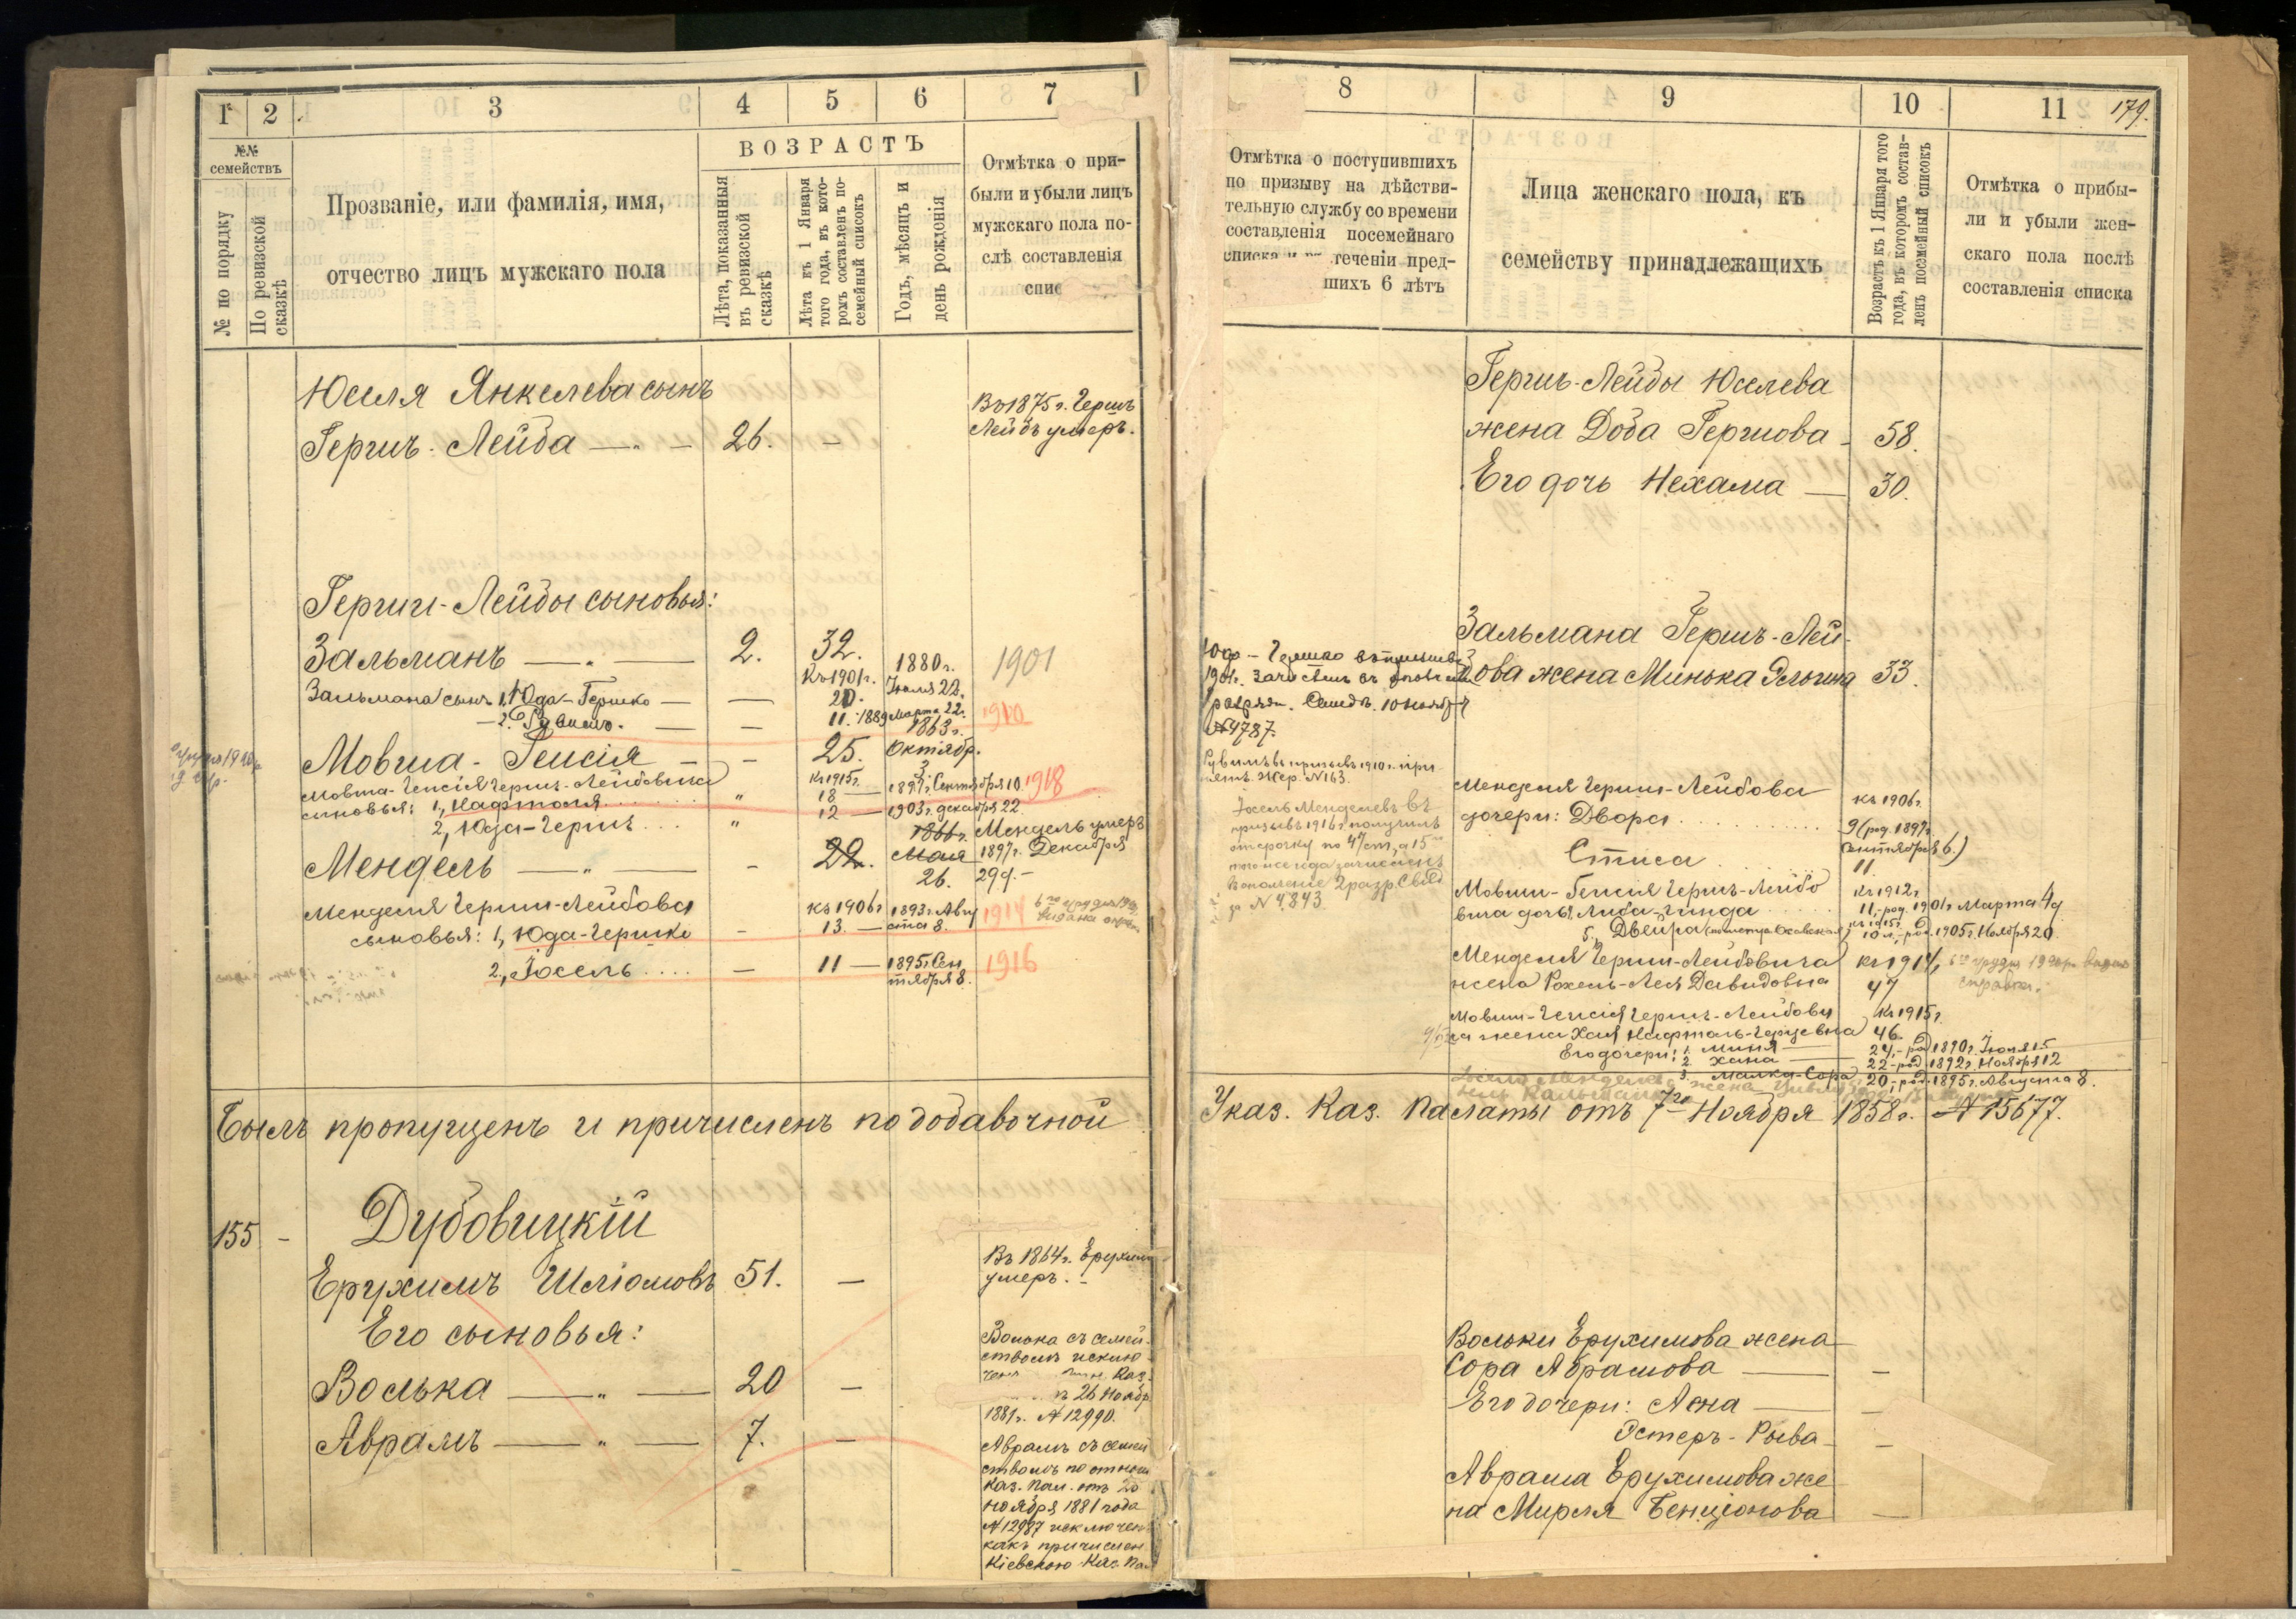 1
2
3
4
5
6
7
№№
семействъ
№ по порядку
По ревизской
сказкѣ
Прозваніе, или фамилія, имя,
отчество лицъ мужскаго пола
ВОЗРАСТЪ
Лѣта, показанныя
въ ревизской
сказкѣ
Лѣта къ 1 Января
того года, въ кото-
ромъ составленъ по-
семейный списокъ
Годъ, мѣсяцъ и
день рожденія
Отмѣтка о при-
были и убыли лицъ
мужскаго пола по-
слѣ составленія
спис
Юселя Янкелева сынъ
Гершъ-Лейба — " — 26. —
Въ 1875 г. Гершъ
Лейбъ умеръ.
Герши-Лейбы сыновья:
Зальманъ — " — 2. 32.
Зальмана сынъ 1, Юда-Гершко — —
Къ 1901 г.
20.
1880 г.
Іюля 22.
1901
2. Рувимъ. — —
11. 1889 Марта 22.
1910
Мовша-Гепсія — - 25.
1863 г.
Октябр.
3.
Мовша-Гепсія Герш.-Лейбовича
сыновья: 1, Нафтоля "
Къ 1915 г.
18 — 1897 г. Сентября 10. 1918
2, Юда-Гершъ "
12 — 1903 г. декабря 22
Мендель — " — - 22.
1866 г.
Мая
26.
Мендель умеръ
1897 г. Декабря
29 д. —
Менделя Герш-Лейбова
сыновья: 1, Юда-Гершко -
Къ 1906 г.
13. —
1893 г. Авгу
ста 8.
1914
2, Іосель —
11 —
1895 г. Сен
тября 8.
1916
Былъ пропущенъ и причисленъ по добавочной
155 -
Дубовицкій
Ерухимъ Шліомовъ 51. —
Въ 1864 г. Ерухимъ
умеръ. -
Его сыновья:
Волька — " — 20 —
Волька съ семей-
ствомъ исклю-
Каз.
26 Ноябр
1881 г. № 12990.
Аврамъ — " — 7. —
Аврамъ съ семей
ствомъ по отнош
Каз. Пал. отъ 20
ноября 1881 года
№ 12987 исключен
какъ причислен
Кіевскою Каз. Па
8
9
10
11
179.
Отмѣтка о поступившихъ
по призыву на дѣйстви-
тельную службу со времени
составленія посемейнаго
списка теченіи пред-
шихъ 6 лѣтъ
Лица женскаго пола, къ
семейству принадлежащихъ
Возрастъ къ 1 Января того
года, въ которомъ состав-
ленъ посемейный списокъ
Отмѣтка о прибы-
ли и убыли жен-
скаго пола послѣ
составленія списка
Гершъ-Лейбы Юселева
жена Доба Гершова - 58.
Его дочь Нехама — 30.
Зальмана Гершъ-Лей-
бова жена Минька Эльгина 33.
1901.
№ 4787.
Рувимъ въ призывъ 1910 г. при-
нятъ. Жер. № 163.
Іосель Менделевъ въ
призывъ 1916 г. получилъ
отсрочку по 47 ст., а 15
того же года зачисленъ
въ ополченіе 2 разр. Свид
за № 4843
Менделя Герш-Лейбова
дочери: Двора
къ 1906 г.
9 (род. 1897 г.
Сентября 6.)
Стиса 11
Мовши-Гепсія Гершъ-Лейбо
вича дочь Либа-Гинда
Къ 1912 г.
11, род. 1901 г. Марта 4 д
Двейра
къ 1915 г.
10 л. - род. 1905 г. Ноября 20.
Менделя Герш-Лейбовича
жена Рохель-Лея Давидовна
къ 1914 г.
47
Мовши-Гепсія Гершъ-Лейбови
ча жена Хая Нафтоль-Герцевна
Къ 1915 г.
46.
Его дочери: 1. Миня — 24, - род. 1890 г. Іюля 15
2. Хана — 22 - род. 1892 г. Ноября 12
3. Малка-Сора 20, - род. 1895 г. Августа 8.
Указ. Каз. Палаты отъ 7го Ноября 1858 г. № 15677.
Вольки Ерухимова жена
Сора Абрамова — -
Его дочери: Асна — -
Эстеръ-Рыва - -
Аврама Ерухимова же
на Мирля Бенціонова —